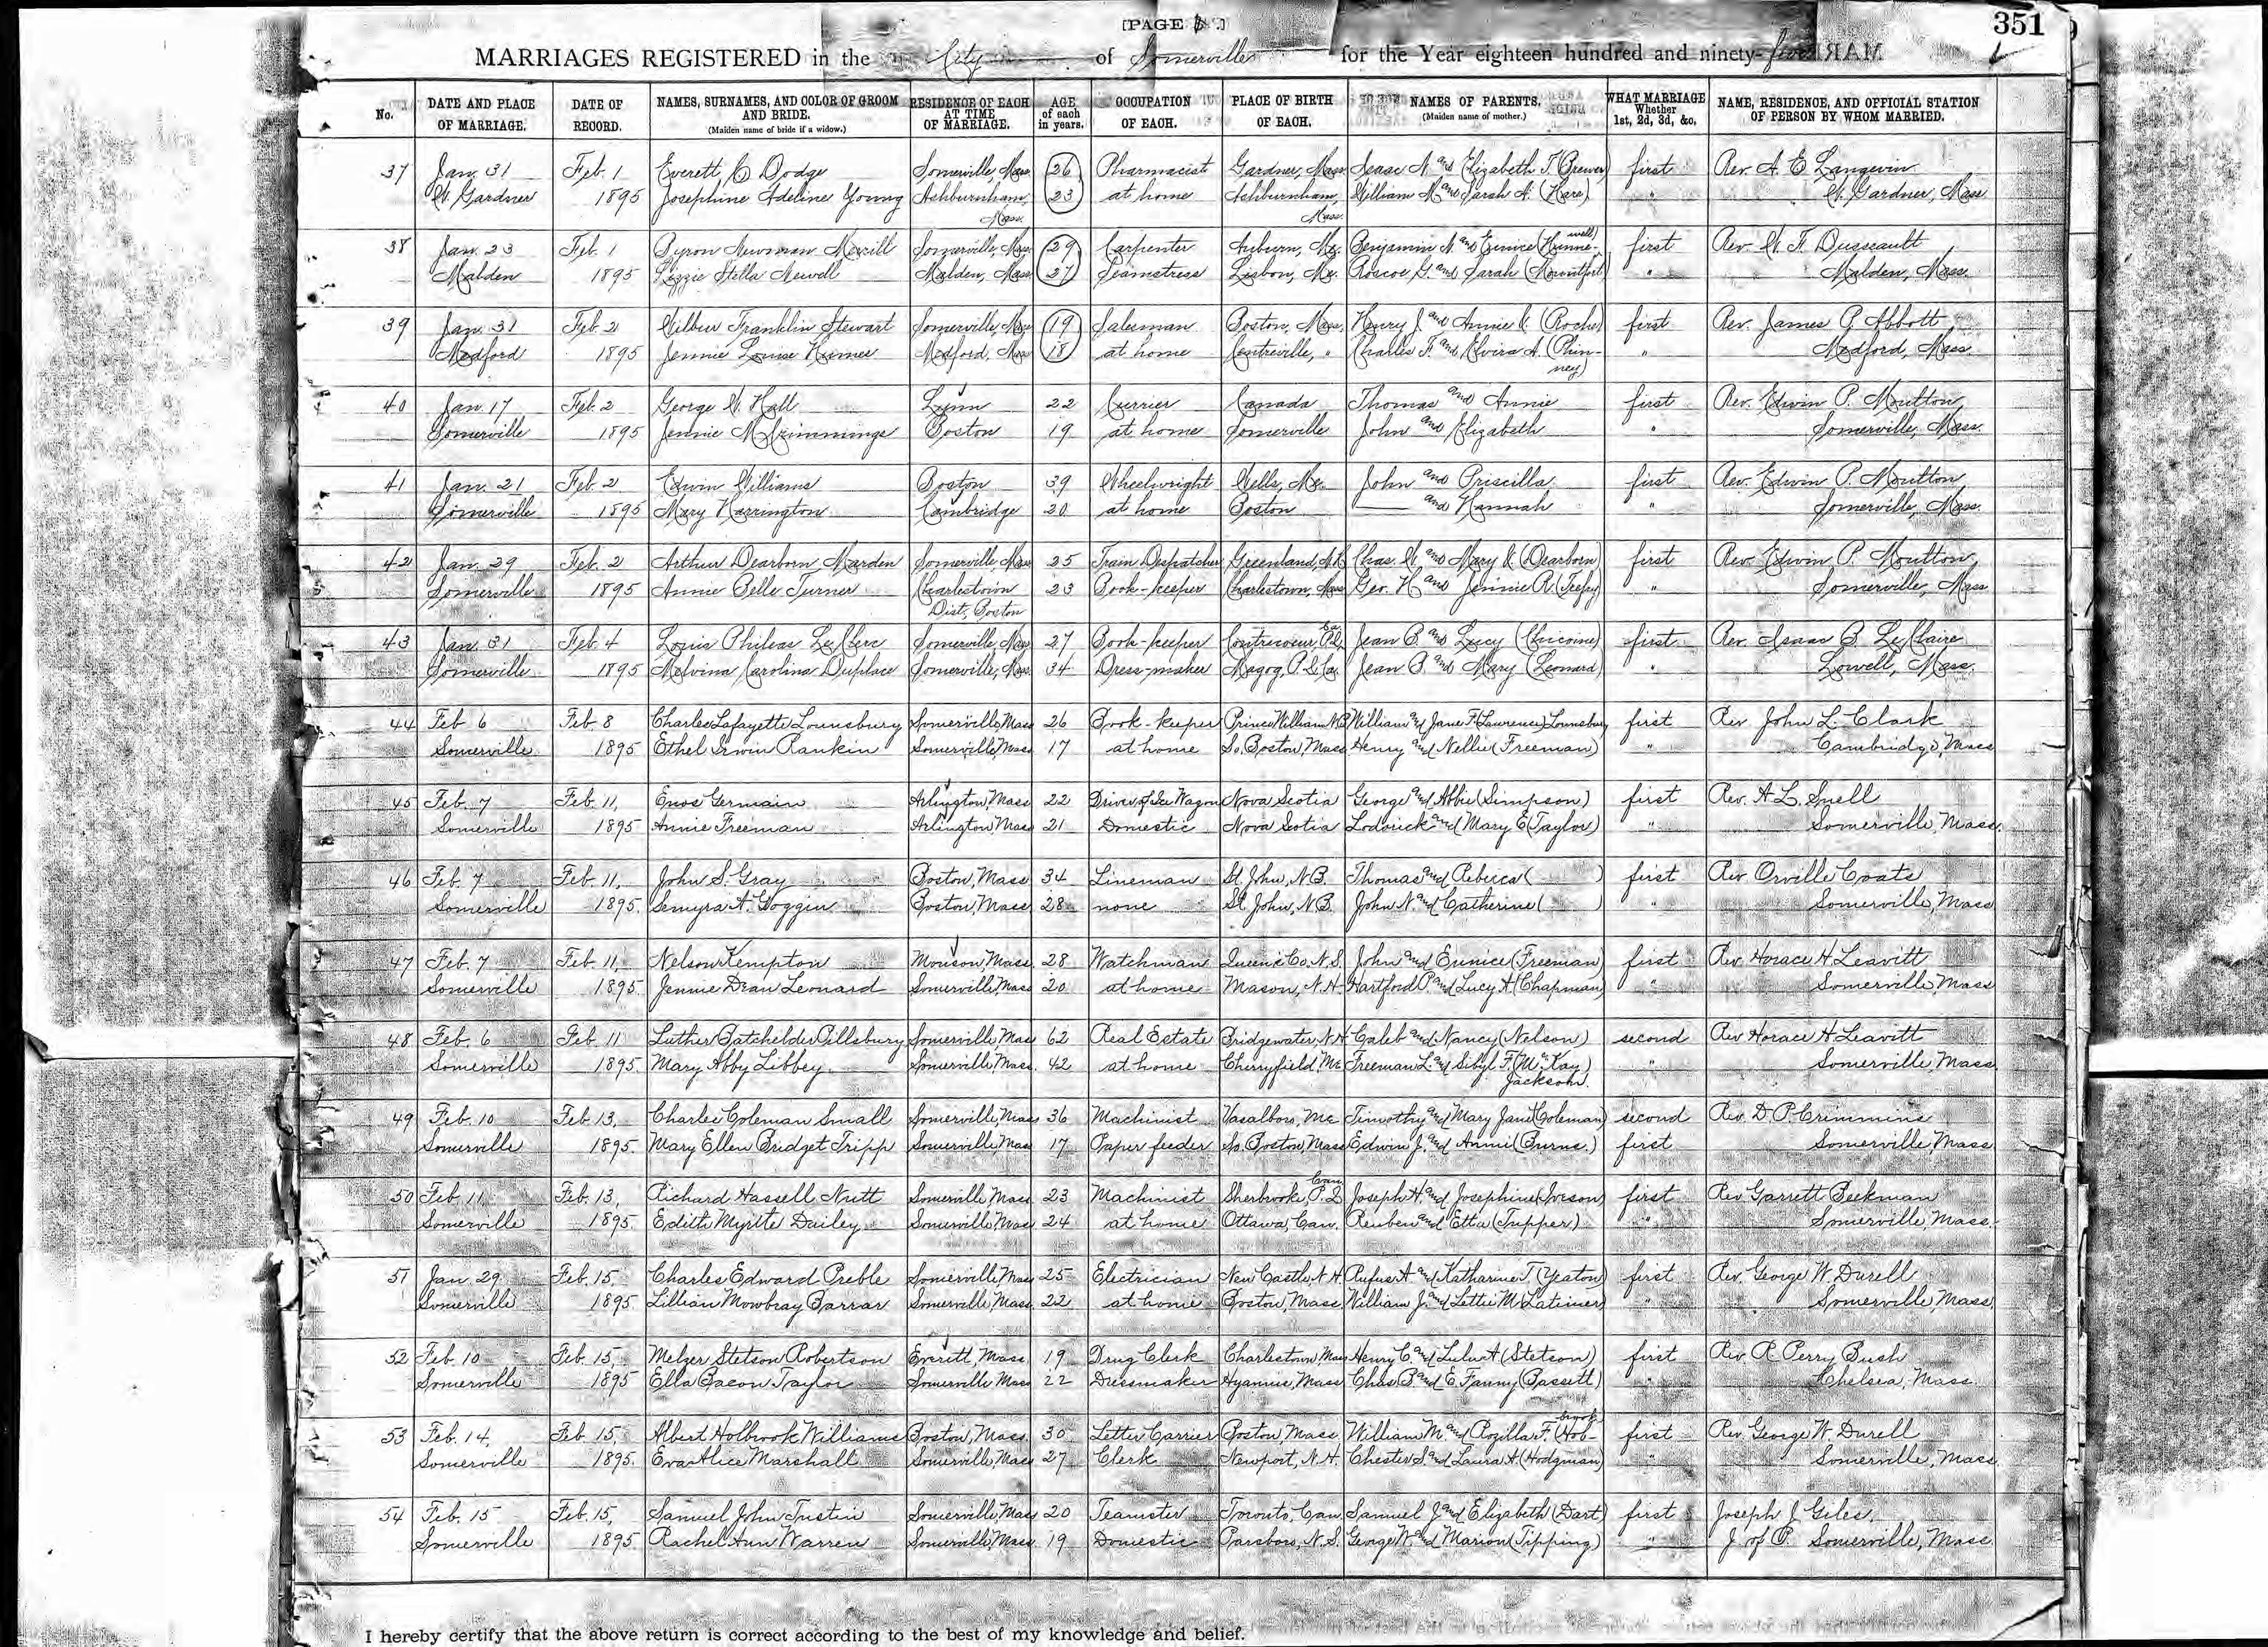 [PAGE ]
351
MARRIAGES REGISTERED in the City of Somerville for the Year eighteen hundred and ninety-five
No. DATE AND PLACE OF MARRIAGE. DATE OF RECORD. NAMES, SURNAMES, AND COLOR OF GROOM AND BRIDE. (Maiden name of bride if a widow.) RESIDENCE OF EACH AT TIME OF MARRIAGE. AGE of each in years. OCCUPATION OF EACH. PLACE OF BIRTH OF EACH. NAMES OF PARENTS. (Maiden name of mother.) WHAT MARRIAGE Whether 1st, 2d, 3d, &c. NAME, RESIDENCE, AND OFFICIAL STATION OF PERSON BY WHOM MARRIED.
37 Jan. 31 Feb. 1 Everett C Dodge Somerville, Mass. 26 Pharmacist Gardner, Mass. Isaac N. and Elizabeth T. (Brewer) first Rev. A. E Langevin
W. Gardner 1895 Josephine Adeline Young Ashburnham, Mass. 23 at home Ashburnham, Mass. William M. and Sarah A. (Hare) " W. Gardner, Mass
38 Jan. 23 Feb. 1 Byron Newman Merrill Somerville, Mass. 29 Carpenter Auburn, Me. Benjamin N. and Eunice (Hunnewell) first Rev. W. F. Dusseault
Malden 1895 Lizzie Stella Newell Malden, Mass. 27 Seamstress Lisbon, Me. Roscoe G. and Sarah (Mountfort) " Malden, Mass.
39 Jan. 31 Feb. 2 Wilbur Franklin Stewart Somerville, Mass 19 Salesman Boston, Mass. Henry J. and Annie (Roche) first Rev. James P. Abbott
Medford 1895 Jennie Louise Homer Medford, Mass 18 at home Centreville, " Charles F. and Elvira A. (Phinney) " Medford, Mass
40 Jan. 17 Feb. 2 George W. Hall Lynn 22 Currier Canada Thomas and Annie first Rev. Edwin P. Moulton
Somerville 1895 Jennie McCrimmings Boston 19 at home Somerville John and Elizabeth " Somerville, Mass.
41 Jan. 21 Feb. 2 Edwin Williams Boston 39 Wheelwright Wells, Me. John and Priscilla first Rev. Edwin P. Moulton
Somerville 1895 Mary Harrington Cambridge 20 at home Boston —— and Hannah " Somerville, Mass.
42 Jan. 29 Feb. 2 Arthur Dearborn Marden Somerville, Mass 25 Train Despatcher Greenland, N.H. Chas. W. and Mary (Dearborn) first Rev. Edwin P. Moulton
Somerville 1895 Annie Belle Turner Charlestown Dist., Boston 23 Book-keeper Charlestown, Mass Geo. H. and Jennie R. (Trefry) " Somerville, Mass
43 Jan. 31 Feb. 4 Louis Phileas LeClerc Somerville, Mass 27 Book-keeper Contrecoeur P.Q. Ca. Jean B. and Lucy (Chicoine) first Rev. Isaac B. LeClaire
Somerville 1895 Melvina Carolina Duplace Somerville, Mass. 34 Dress-maker Magog, P.Q. Ca. Jean B. and Mary (Leonard) " Lowell, Mass.
44 Feb 6 Feb 8 Charles Lafayette Lounsbury Somerville Mass 26 Book-keeper Prince William N.B. William and Jane F. (Lawrence) Lounsbury first Rev John L. Clark
Somerville 1895 Ethel Irwin Rankin Somerville, Mass 17 at home So. Boston, Mass Henry and Nellie (Freeman) " Cambridge, Mass
45 Feb. 7 Feb. 11, Enos Germain Arlington, Mass 22 Driver of Ice Wagon Nova Scotia George and Abbie (Simpson) first Rev. A. L. Snell
Somerville 1895 Annie Freeman Arlington Mass 21 Domestic Nova Scotia Lodorick and Mary E (Taylor) " Somerville Mass.
46 Feb. 7 Feb. 11, John S. Gray Boston, Mass 34 Lineman St. John, N.B. Thomas and Rebecca ( ) first Rev Orville Coats
Somerville 1895. Semyra A. Goggin Boston, Mass 28 none St. John, N.B. John N. and Catherine ( ) " Somerville, Mass
47 Feb. 7 Feb. 11, Nelson Kempton Monson, Mass. 28 Watchman Queens Co. N.S. John and Eunice (Freeman) first Rev. Horace H. Leavitt
Somerville 1895. Jennie Dean Leonard Somerville, Mass 20 at home Mason, N.H. Hartford P. and Lucy A (Chapman) " Somerville, Mass
48 Feb. 6 Feb 11 Luther Batchelder Pillsbury Somerville Mass 62 Real Estate Bridgewater, N.H. Caleb and Nancy (Nelson) second Rev Horace H Leavitt
Somerville 1895. Mary Abby Libbey Somerville Mass. 42 at home Cherryfield, Me Freeman L. and Sibyl F. (McKay) Jackson " Somerville Mass.
49 Feb. 10 Feb. 13, Charles Coleman Small Somerville, Mass 36 Machinist Vasalboro, Me Timothy and Mary Jane (Coleman) second Rev. D. P. Crimmins
Somerville 1895. Mary Ellen Bridget Tripp Somerville, Mass 17 Paper feeder So. Boston, Mass Edwin J. and Annie (Burns.) first Somerville, Mass.
50 Feb. 11 Feb. 13, Richard Hassell Nutt Somerville Mass 23 Machinist Sherbrooke, P.Q. Can Joseph H. and Josephine (Iveson) first Rev Garrett Beekman
Somerville 1895. Edith Myrtle Dailey Somerville Mass 24 at home Ottawa, Can. Reuben and Etta (Tupper) " Somerville Mass.
51 Jan 29. Feb. 15, Charles Edward Preble Somerville Mass 25 Electrician New Castle N.H. Rufus A and Katharine T. (Yeaton) first Rev. George W. Durell
Somerville 1895 Lillian Mowbray Barrar Somerville, Mass. 22 at home Boston, Mass. William J. and Lettie M (Latimer) " Somerville, Mass.
52 Feb. 10 Feb. 15, Melzer Stetson Robertson Everett, Mass. 19 Drug Clerk Charlestown Mass Henry C. and Lulu A (Stetson) first Rev. R Perry Bush
Somerville 1895 Ella Bacon Taylor Somerville Mass 22 Dressmaker Hyannis, Mass Chas B. and E. Fanny (Bassett) " Chelsea, Mass.
53 Feb. 14, Feb. 15 Albert Holbrook Williams Boston, Mass. 30 Letter Carrier Boston, Mass William M. and Rozilla F. (Holbrook first Rev. George W. Durell
Somerville 1895. Eva Alice Marshall Somerville, Mass 27 Clerk Newport, N.H. Chester S. and Laura A. (Hodgman) " Somerville, Mass.
54 Feb. 15 Feb. 15, Samuel John Justin Somerville, Mass 20 Teamster Toronto, Can. Samuel J. and Elizabeth (Dart) first Joseph J. Giles,
Somerville 1895 Rachel Ann Warren Somerville, Mass. 19 Domestic Parsboro, N.S. George W. and Marion (Tipping) " J. of P. Somerville, Mass.
I hereby certify that the above return is correct according to the best of my knowledge and belief.